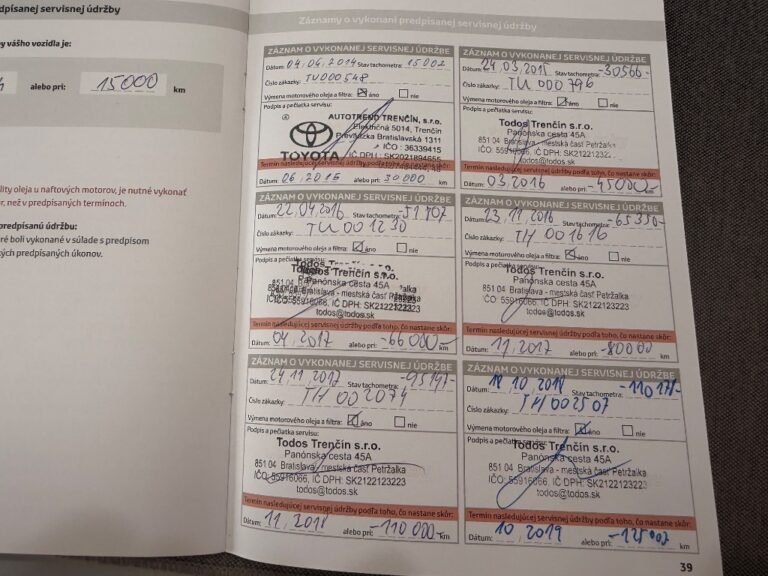 dpísanej servisnej údržby
by vášho vozidla je:
alebo pri: 15000 km
lity oleja u naftových motorov, je nutné vykonať
r, než v predpísaných termínoch.
predpísanú údržbu:
ré boli vykonané v súlade s predpisom
kých predpísaných úkonov.
Záznamy o vykonaní predpísanej servisnej údržby
ZÁZNAM O VYKONANEJ SERVISNEJ ÚDRŽBE
Dátum: 04.04.2014 Stav tachometra: 15002
Číslo zákazky: TU000548
Výmena motorového oleja a filtra: áno nie
Podpis a pečiatka servisu:
AUTOTREND TRENČÍN, s.r.o.
Električná 5014, Trenčín
Prevádzka Bratislavská 1311
IČO: 36339415
TOYOTA IČ DPH: SK2021894655
Termín nasledujúcej servisnej údržby podľa toho, čo nastane skôr:
Dátum: 06.2015 alebo pri: 30000 km
ZÁZNAM O VYKONANEJ SERVISNEJ ÚDRŽBE
Dátum: 24.03.2015 Stav tachometra: -30566-
Číslo zákazky: TU 000796
Výmena motorového oleja a filtra: áno nie
Podpis a pečiatka servisu:
Todos Trenčín s.r.o.
Panónska cesta 45A
851 04 Bratislava - mestská časť Petržalka
todos@todos.sk
Termín nasledujúcej servisnej údržby podľa toho, čo nastane skôr:
Dátum: 03.2016 alebo pri: -45000- km
ZÁZNAM O VYKONANEJ SERVISNEJ ÚDRŽBE
Dátum: 22.04.2016 Stav tachometra: -51707
Číslo zákazky: TU 001230
Výmena motorového oleja a filtra: áno nie
Podpis a pečiatka
Todos Trenčín s.r.o.
Panónska cesta 45A
851 04 Bratislava - mestská časť Petržalka
IČO: 55916066, IČ DPH: SK2122123223
todos@todos.sk
Termín nasledujúcej servisnej údržby podľa toho, čo nastane skôr:
Dátum: 04.2017 alebo pri: -66000- km
ZÁZNAM O VYKONANEJ SERVISNEJ ÚDRŽBE
Dátum: 23.11.2016 Stav tachometra: -65350-
Číslo zákazky: TH 001616
Výmena motorového oleja a filtra: áno nie
Podpis a pečiatka servisu:
Todos Trenčín s.r.o.
Panónska cesta 45A
851 04 Bratislava - mestská časť Petržalka
IČO: 55916066, IČ DPH: SK2122123223
todos@todos.sk
Termín nasledujúcej servisnej údržby podľa toho, čo nastane skôr:
Dátum: 11.2017 alebo pri: -80000 km
ZÁZNAM O VYKONANEJ SERVISNEJ ÚDRŽBE
Dátum: 24.11.2017 Stav tachometra: -95147-
Číslo zákazky: TH 002074
Výmena motorového oleja a filtra: áno nie
Podpis a pečiatka servisu:
Todos Trenčín s.r.o.
Panónska cesta 45A
851 04 Bratislava - mestská časť Petržalka
IČO: 55916066, IČ DPH: SK2122123223
todos@todos.sk
Termín nasledujúcej servisnej údržby podľa toho, čo nastane skôr:
Dátum: 11.2018 alebo pri: -110 000- km
ZÁZNAM O VYKONANEJ SERVISNEJ ÚDRŽBE
Dátum: 18.10.2018 Stav tachometra:
Číslo zákazky: TH 002507
Výmena motorového oleja a filtra: áno nie
Podpis a pečiatka servisu:
Todos Trenčín s.r.o.
Panónska cesta 45A
851 04 Bratislava - mestská časť Petržalka
IČO: 55916066, IČ DPH: SK2122123223
todos@todos.sk
Termín nasledujúcej servisnej údržby podľa toho, čo nastane skôr:
Dátum: 10.2019 alebo pri: km
39